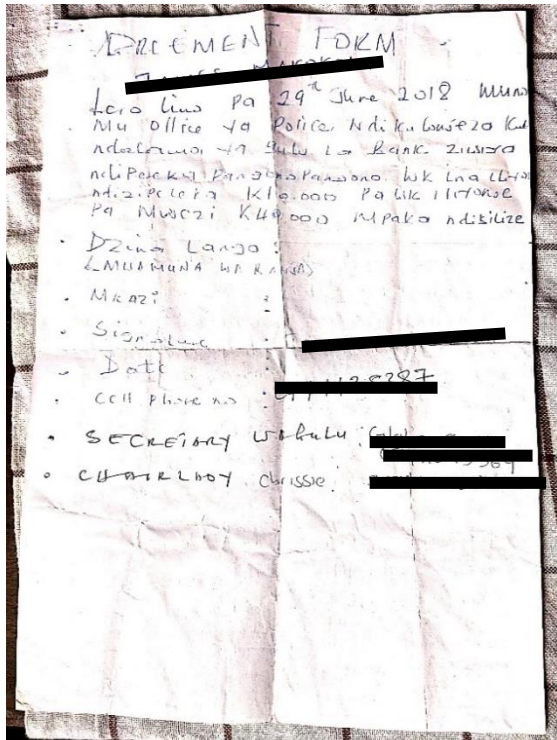 AGREEMENT FORM
Lero lino pa 29th June 2018 muno
Mu office ya Police Ndikulonjeza kut
ndalama ya gulu la Bank
ndipeleka Pangonopangono wk ina iliyonse
ndizipeleka K10,000 Pa wk iliyonse
Pa Mwezi K40,000 Mpaka ndisilize
• Dzina Langa :
(MWAMUNA WA KAWA)
• Mkazi :
• Signature :
• Date :
• Cell phone no :
• SECRETARY wagulu :
• CHAIRLADY Chrissie